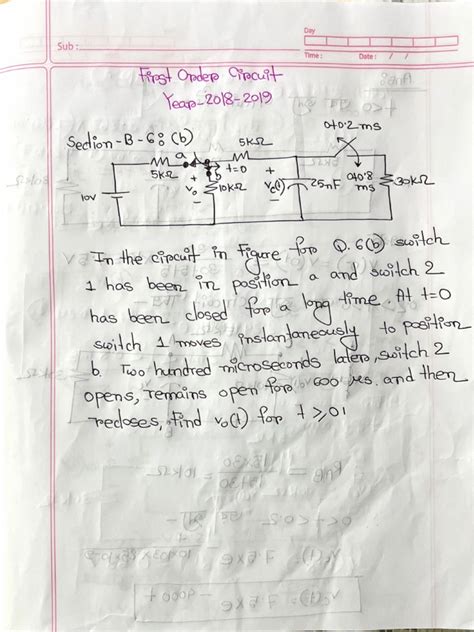 Day
Sub :
Time :
Date : / /
First Order Circuit
Year-2018-2019
Section-B-6:(b)
0+0.2 ms
5kΩ
a
5kΩ
b
t=0
10v
+
v₀
−
10kΩ
+
Vc(t)
−
25nF
0+0.8
ms
30kΩ
In the circuit in Figure for Q. 6(b) switch
1 has been in position a and switch 2
has been closed for a long time. At t=0
switch 1 moves instantaneously to position
b. Two hundred microseconds later, switch 2
opens, remains open for 600 μs. and then
recloses, find v₀(t) for t ≥ 0!